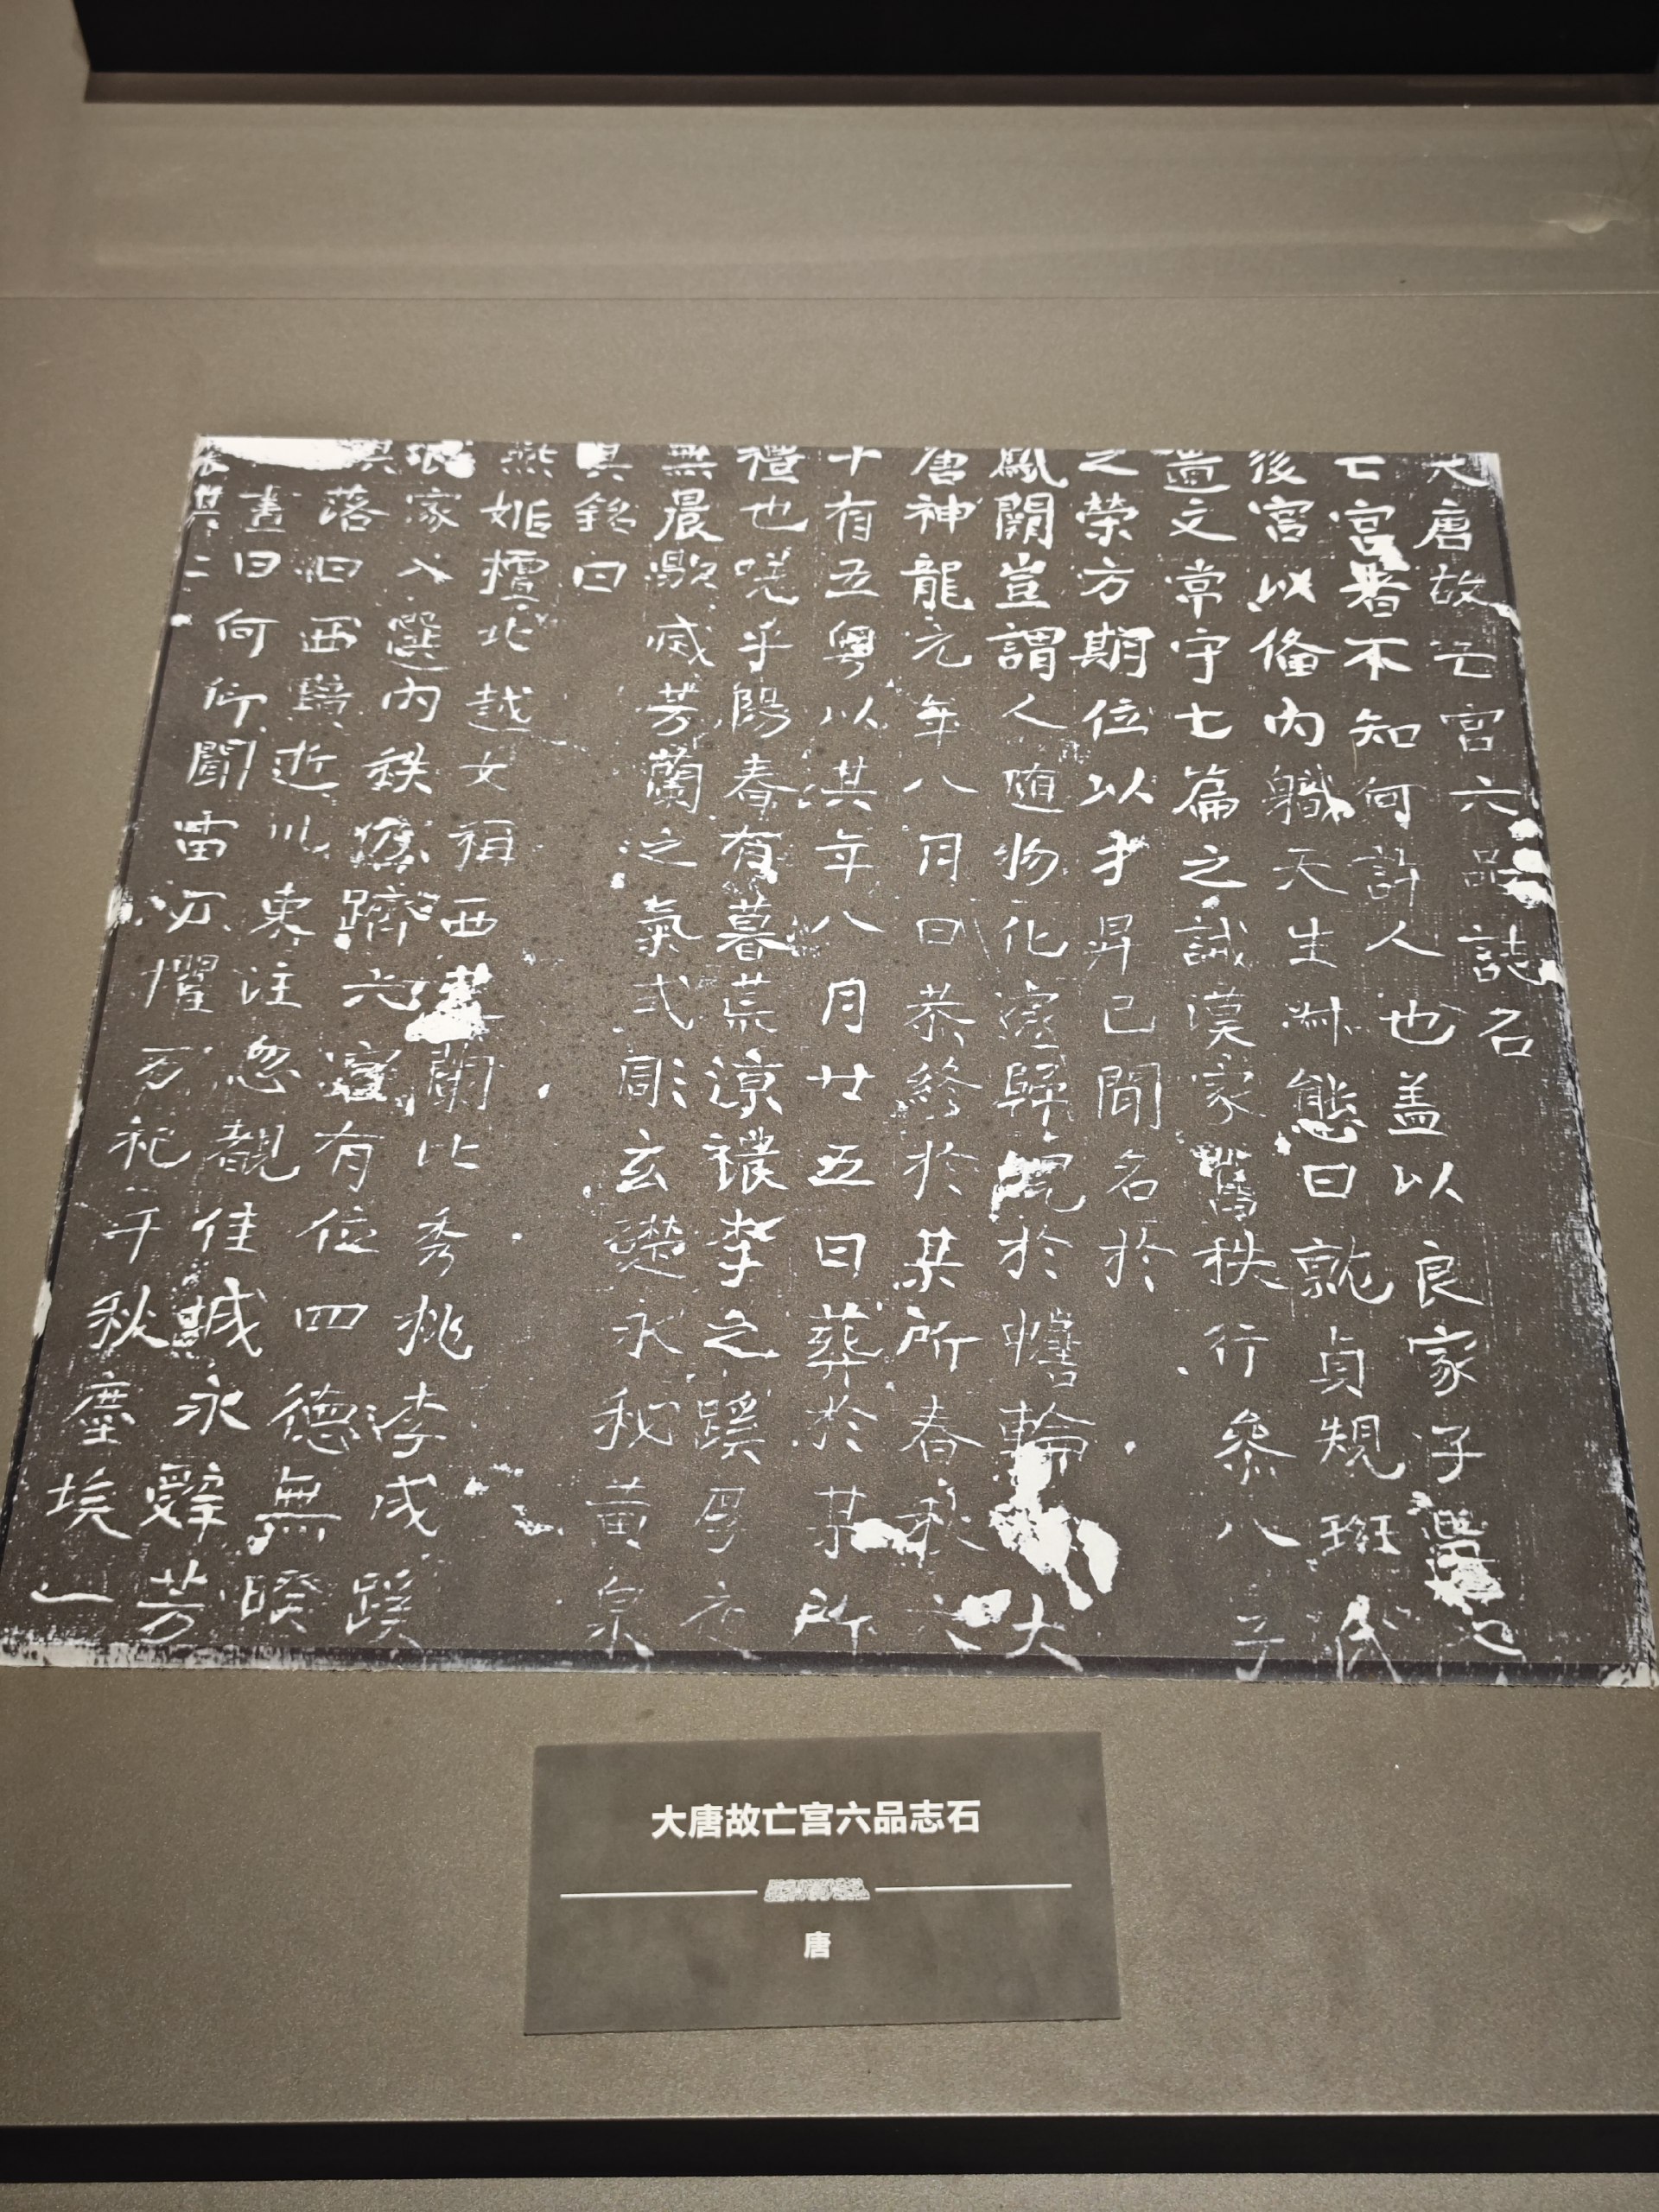 大唐故亡宮六品誌石
亡宮者不知何許人也盖以良家子選也
後宮以俻内軄天生淋態日就貞規班氏
遺文常守七篇之誡漢家舊秩行叅八子
之榮方期位以才昇已聞名於
鳳闕豈謂人随物化遽歸魄於蟾輪大
唐神龍元年八月日恭終於某所春秋六
十有五粤以其年八月廿五日葬於某所
禮也嗟乎陽春有暮荒涼穠李之蹊厚夜
無晨歇滅芳蘭之氣式彫玄礎永秘黄泉
其銘曰
燕姬擅北越女稱西蘭比秀桃李成蹊
良家入選内秩 躋六宮有位四德無暌 其一
落日西歸逝川東注忽覩佳城永辭芳
晝日何仰聞雷勿懼万祀千秋塵埃一
其二
大唐故亡宫六品志石
唐